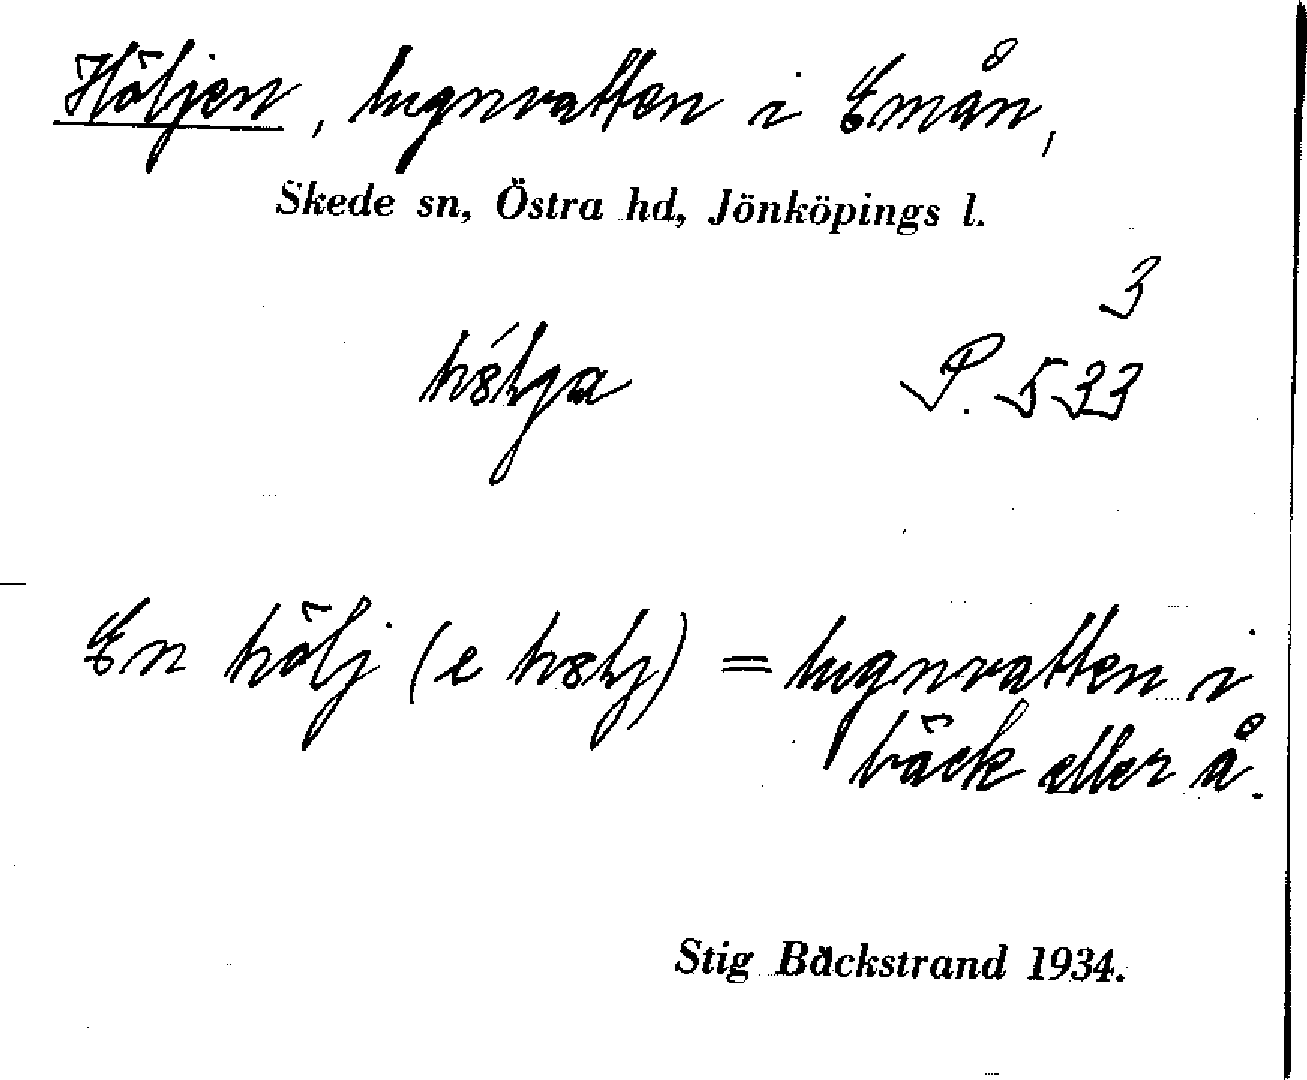 Höljen, lugnvatten i Emån,
Skede sn, Östra hd, Jönköpings l.
3
P. 533
En hölj (e) = lugnvatten i
bäck eller å.
Stig Bäckstrand 1934.